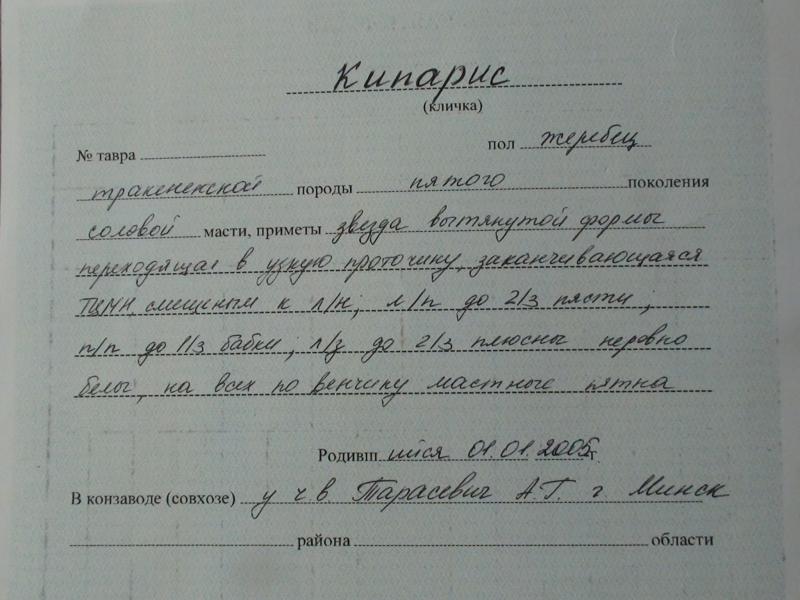 Кипарис
(кличка)
№ тавра пол жеребец
тракененской породы пятого поколения
соловой масти, приметы звезда вытянутой формы
переходящая в узкую проточину, заканчивающаяся
ТЦМН, смещеным к л/н; л/п до 2/3 пясти;
п/п до 1/3 бабки; л/з до 2/3 плюсны неровно
белы, на всех по венчику мастные пятна
Родивш ийся 01.01.2005 г.
В конзаводе (совхозе) у ч.в. Тарасевич А.Г. г Минск
района области